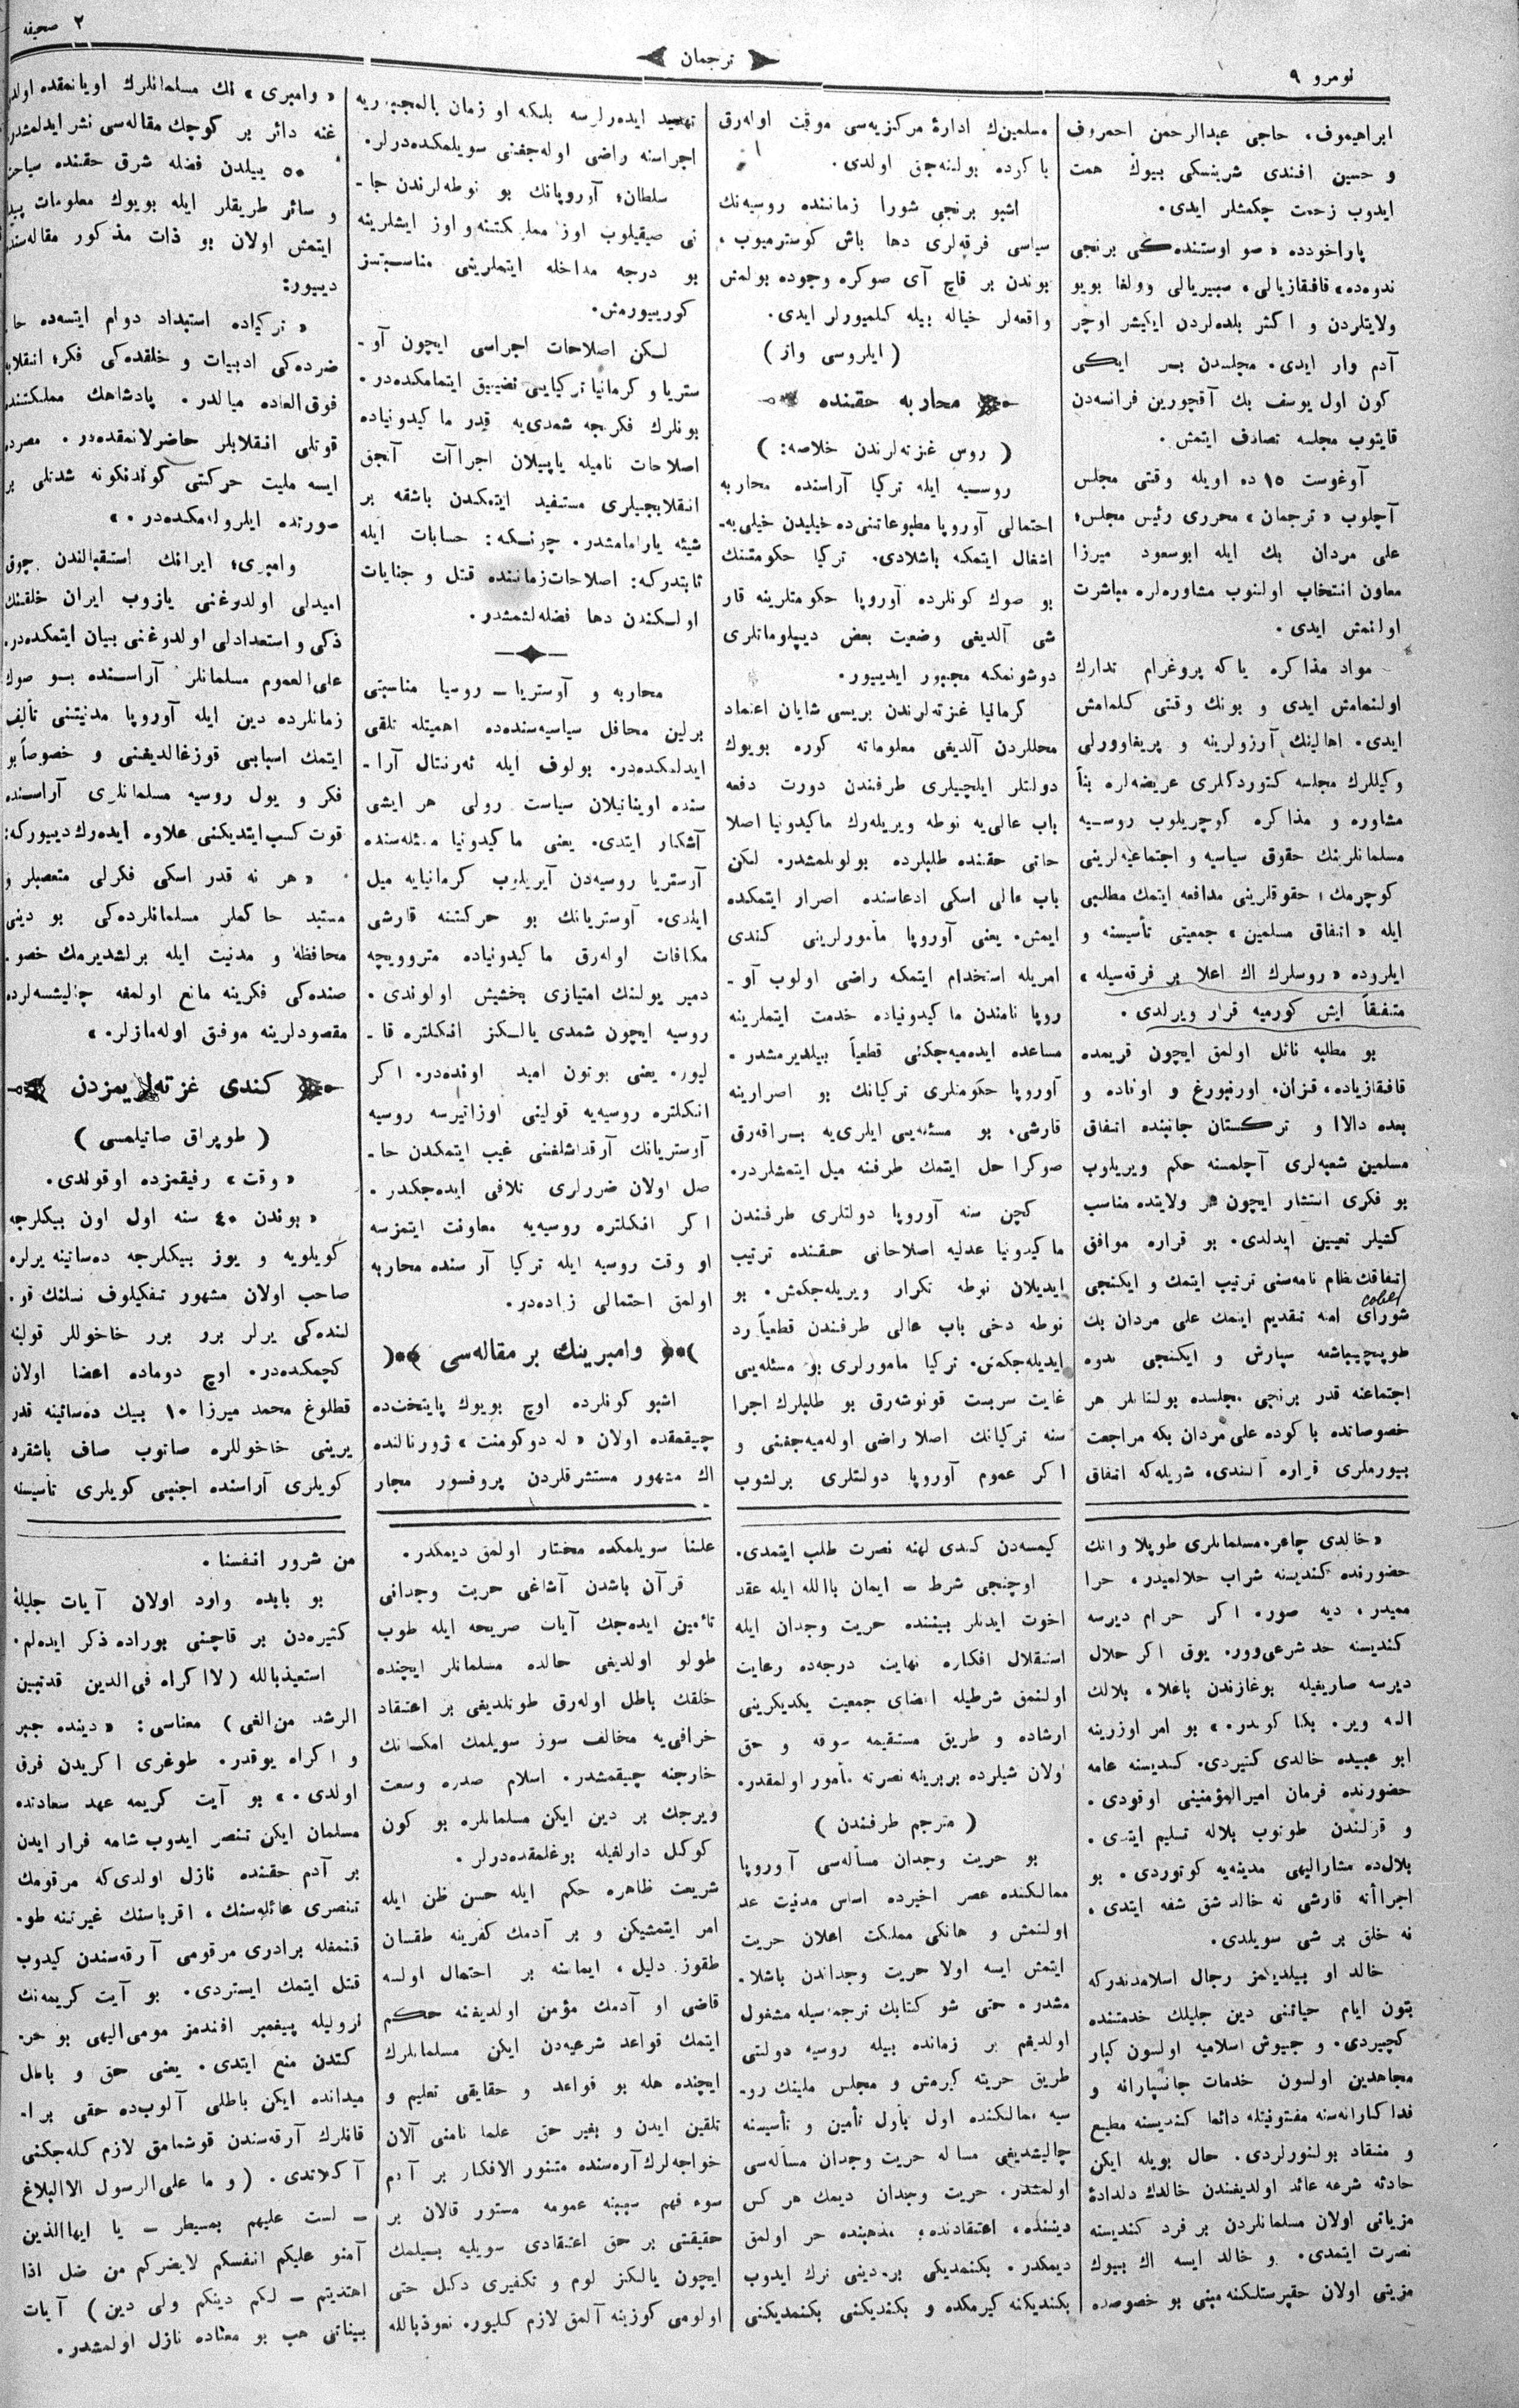 نومرو ٩
ترجمان
٢ صحیفه
ابراهیموف، حاجی عبدالرحمن احمروف
و حسین افندی شرینسکی بیوك همت
ایدوب زحمت چکمشلر ایدی.
پاراخودده «صو اوستنده‌کی برنجی
ندوه‌ده» قافقازیالی، سیبریالی وولغا بویو
ولایتلردن و اکثر بلده‌لردن ایکیشر اوچر
آدم وار ایدی. مجلسدن بر ایکی
کون اول یوسف بك آقچورین فرانسه‌دن
قایتوب مجلسه تصادف ایتمش.
آوغوست ١٥ ده اویله وقتی مجلس
آچلوب «ترجمان» محرری رئیس مجلس؛
علی مردان بك ایله ابوسعود میرزا
معاون انتخاب اولنوب مشاوره‌لره مباشرت
اولنمش ایدی.
مواد مذاکره یا که پروغرام تدارك
اولنمامش ایدی و بونك وقتی کلمامش
ایدی. اهالینك آرزولرینه و پریغاوورلی
وکیللرك مجلسه کتوردکلری عریضه‌لره بناً
مشاوره و مذاکره کوچریلوب روسیه
مسلمانلرینك حقوق سیاسیه و اجتماعیه‌لرینی
کوچرمك، حقوقلرینی مدافعه ایتمك مطلبی
ایله «اتفاق مسلمین» جمعیتی تأسیسنه و
ایلروده «روسلرك اك اعلا بر فرقه‌سیله»
متفقاً ایش کورمیه قرار ویرلدی.
بو مطلبه نائل اولمق ایچون قریمده
قافقازیاده، قزان، اورنبورغ و اوفاده و
بعده دالا و ترکستان جانبنده اتفاق
مسلمین شعبه‌لری آچلمسنه حکم ویریلوب
بو فکری انتشار ایچون هر ولایتده مناسب
کشیلر تعیین ایدلدی. بو قراره موافق
اتفاقك نظام نامه‌سنی ترتیب ایتمك و ایکنجی
شورای امته تقدیم ایتمك علی مردان بك
طوپچیباشفه سپارش و ایکنجی ندوه
اجتماعنه قدر برنجی مجلسده بولنانلر هر
خصوصاتده باکوده علی مردان بکه مراجعت
بیورملری قراره آلندی، شریله‌که اتفاق
مسلمین‌ك ادارهٔ مرکزیه‌سی موقت اوله‌رق
باکرده بولنه‌جق اولدی.
اشبو برنجی شورا زماننده روسیه‌نك
سیاسی فرقه‌لری دها باش کوسترمیوب،
بوندن بر قاچ آی صوکره وجوده بولمش
واقعه‌لر خیاله بیله کلمیورلر ایدی.
(ایلروسی واز)
محاربه حقنده
(روس غزته‌لرندن خلاصه:)
روسیه ایله ترکیا آراسنده محاربه
احتمالی آوروپا مطبوعاتنی‌ده خیلیدن خیلی‌یه-
اشغال ایتمکه باشلادی. ترکیا حکومتنك
بو صوك کونلرده آوروپا حکومتلرینه قار
شی آلدیغی وضعیت بعض دیپلوماتلری
دوشونمکه مجبور ایدییور.
کرمانیا غزته‌لرندن بریسی شایان اعتماد
محللردن آلدیغی معلوماته کوره بویوك
دولتلر ایلچیلری طرفندن دورت دفعه
باب عالی‌یه نوطه ویریله‌رك ماکیدونیا اصلا
حاتی حقنده طلبلرده بولونلمشدر. لکن
باب عالی اسکی ادعاسنده اصرار ایتمکده
ایمش. یعنی آوروپا مأمورلرینی کندی
امریله استخدام ایتمکه راضی اولوب آو-
روپا نامندن ماکیدونیاده خدمت ایتملرینه
مساعده ایده‌میه‌جکنی قطعیاً بیلدیرمشدر.
آوروپا حکومتلری ترکیانك بو اصرارینه
قارشی. بو مسئله‌یی ایلری‌یه براقه‌رق
صوکرا حل ایتمك طرفنه میل ایتمشلردر.
کچن سنه آوروپا دولتلری طرفندن
ماکیدونیا عدلیه اصلاحاتی حقنده ترتیب
ایدیلان نوطه تکرار ویریله‌جکمش. بو
نوطه دخی باب عالی طرفندن قطعیاً رد
ایدیله‌جکمش. ترکیا مامورلری بو مسئله‌یی
غایت سربست قونوشه‌رق بو طلبلرك اجرا
سنه ترکیانك اصلا راضی اوله‌میه‌جغنی و
اکر عموم آوروپا دولتلری برلشوب
تهدید ایدەرلرسه بلکه او زمان بالمجبوریه
اجراسنه راضی اوله‌جغنی سویلمکده‌درلر.
سلطان؛ آوروپانك بو نوطه‌لرندن جا-
نی صیقیلوب اوز مملکتنه و اوز ایشلرینه
بو درجه مداخله ایتملرینی مناسبتسز
کورییورمش.
لکن اصلاحات اجراسی ایچون آو-
ستریا و کرمانیا ترکیایی تضییق ایتمامکده‌در.
بونلرك فکرنجه شمدی‌یه قدر ماکیدونیاده
اصلاحات نامیله یاپیلان اجراآت آنجق
انقلابجیلری مستفید ایتمکدن باشقه بر
شیئه یارامامشدر. چونکه: حسابات ایله
ثابتدرکه: اصلاحات زماننده قتل و جنایات
اولکندن دها فضله‌لشمشدر.
محاربه و آوستریا – روسیا مناسبتی
برلین محافل سیاسیه‌سنده‌ده اهمیتله تلقی
ایدلمکده‌در. بولوف ایله ئه‌رنتال آرا-
سنده اوینانیلان سیاست رولی هر ایشی
آشکار ایتدی. یعنی ماکیدونیا مسئله‌سنده
آوستریا روسیه‌دن آیریلوب کرمانیایه میل
ایلدی. آوستریانك بو حرکتنه قارشی
مکافات اوله‌رق ماکیدونیاده متروویچه
دمیر یولنك امتیازی بخشیش اولوندی.
روسیه ایچون شمدی یالکز انکلتره قا-
لیور. یعنی بوتون امید اونده‌در. اکر
انکلتره روسیه‌یه قولینی اوزاتیرسه روسیه
آوستریانك آرقداشلغنی غیب ایتمکدن حا-
صل اولان ضررلری تلافی ایده‌جکدر.
اکر انکلتره روسیه‌یه معاونت ایتمزسه
او وقت روسیه ایله ترکیا آرسنده محاربه
اولمق احتمالی زاده‌در.
وامبرینك بر مقاله‌سی
اشبو کونلرده اوچ بویوك پایتخت‌ده
چیقمقده اولان «له دوکومنت» ژورنالنده
اك مشهور مستشرقلردن پروفسور مجار
«وامبری» نك مسلمانلرك اویانمقده اولد
غنه دائر بر کوچك مقاله‌سی نشر ایدلمشدر
٥٠ ییلدن فضله شرق حقنده سیاحت
و سائر طریقلر ایله بویوك معلومات پیدا
ایتمش اولان بو ذات مذکور مقاله‌سنده
دییور:
«ترکیاده استبداد دوام ایتسه‌ده حا
ضرده‌کی ادبیات و خلقده‌کی فکر؛ انقلابه
فوق‌العاده میالدر. پادشاهك مملکتنده
قوتلی انقلابلر حاضرلانمقده‌در. مصرده
ایسه ملیت حرکتی کوندنکونه شدتلی بر
صورتده ایلروله‌مکده‌در.»
وامبری؛ ایرانك استقبالندن چوق
امیدلی اولدوغنی یازوب ایران خلقنك
ذکی و استعدادلی اولدوغنی بیان ایتمکده‌در.
علی‌العموم مسلمانلر آراسنده بو صوك
زمانلرده دین ایله آوروپا مدنیتنی تألیف
ایتمك اسبابی قوزغالدیغنی و خصوصاً بو
فکر و یول روسیه مسلمانلری آراسنده
قوت کسب ایتدیکنی علاوه ایده‌رك دییورکه:
«هر نه قدر اسکی فکرلی متعصبلر و
مستبد حاکملر مسلمانلرده‌کی بو دینی
محافظه و مدنیت ایله برلشدیرمك خصو-
صنده‌کی فکرینه مانع اولمغه چالیشسه‌لرده
مقصودلرینه موفق اوله‌مازلر.»
کندی غزته‌لریمزدن
(طوپراق صاتیلمسی)
«وقت» رفیقمزده اوقولدی.
«بوندن ٤٠ سنه اول اون بیکلرجه
کویلویه و یوز بیکلرجه ده‌ساتینه یرلره
صاحب اولان مشهور تفکیلوف نسلنك قو-
لنده‌کی یرلر برر برر خاخوللر قولنه
کچمکده‌در. اوچ دوماده اعضا اولان
قطلوغ محمد میرزا ١٠ بیك ده‌ساتینه قدر
یرینی خاخوللره صاتوب صاف باشقرد
کویلری آراسنده اجنبی کویلری تأسیسنه
«خالدی چاعر. مسلمانلری طوپلا و انك
حضورنده کندیسنه شراب حلالمیدر، حرا
ممیدر، دیه صور. اکر حرام دیرسه
کندیسنه حد شرعی وور. یوق اکر حلال
دیرسه صاریغیله بوغازندن باغلا، بلالك
النه ویر. بکا کوندر.» بو امر اوزرینه
ابو عبیده خالدی کتیردی. کندیسنه عامه
حضورنده فرمان امیرالمؤمنینی اوقودی.
و قولندن طوتوب بلاله تسلیم ایتدی.
بلال‌ده مشارالیهی مدینه‌یه کوتوردی. بو
اجراأته قارشی نه خالد شق شفه ایتدی،
نه خلق بر شی سویلدی.
خالد او بیلدیکمز رجال اسلامدندرکه
بتون ایام حیاتنی دین جلیلك خدمتنده
کچیردی. و جیوش اسلامیه اولسون کبار
مجاهدین اولسون خدمات جانسپارانه و
فداکارانه‌سنه مفتونیتله دائما کندیسنه مطیع
و منقاد بولنورلردی. حال بویله ایکن
حادثه شرعه عائد اولدیغندن خالدك دلدادهٔ
مزیاتی اولان مسلمانلردن بر فرد کندیسنه
نصرت ایتمدی. و خالد ایسه اك بیوك
مزیتی اولان حقپرستلکنه مبنی بو خصوصده
کیمسه‌دن کندی لهنه نصرت طلب ایتمدی.
اوچنجی شرط – ایمان باالله ایله عقد
اخوت ایدنلر بیننده حریت وجدان ایله
استقلال افکاره نهایت درجه‌ده رعایت
اولنمق شرطیله اعضای جمعیت یکدیکرینی
ارشاده و طریق مستقیمه سوقه و حق
اولان شیلرده بربرینه نصرته مأمور اولمقدر.
(مترجم طرفندن)
بو حریت وجدان مسأله‌سی آوروپا
ممالکنده عصر اخیرده اساس مدنیت عد
اولنمش و هانکی مملکت اعلان حریت
ایتمش ایسه اولا حریت وجداندن باشلا-
مشدر. حتی شو کتابك ترجمه‌سیله مشغول
اولدیغم بر زمانده بیله روسیه دولتی
طریق حریته کیرمش و مجلس ملینك رو-
سیه ممالکنده اول بأول تأمین و تأسیسنه
چالیشدیغی مساله حریت وجدان مسأله‌سی
اولمشدر. حریت وجدان دیمك هر کس
دیننده، اعتقادنده، مذهبنده حر اولمق
دیمکدر. بکنمدیکی بر دینی ترك ایدوب
بکندیکنه کیرمکده و بکندیکنی بکنمدیکنی
علنا سویلمکده مختار اولمق دیمکدر.
قرآن باشدن آشاغی حریت وجدانی
تأمین ایده‌جك آیات صریحه ایله طوب
طولو اولدیغی حالده مسلمانلر ایچنده
خلقك باطل اوله‌رق طوتلدیغی بر اعتقاد
خرافی‌یه مخالف سوز سویلمك امکانك
خارجنه چیقمشدر. اسلام صدره وسعت
ویرجك بر دین ایکن مسلمانلره بو کون
کوکل دارلغیله بوغلمقده‌درلر.
شریعت ظاهره حکم ایله حسن ظن ایله
امر ایتمشیکن و بر آدمك کفرینه طقسان
طقوز دلیل، ایماننه بر احتمال اولسه
قاضی او آدمك مؤمن اولدیغنه حکم
ایتمك قواعد شرعیه‌دن ایکن مسلمانلرك
ایچنده هله بو قواعد و حقایقی تعلیم و
تلقین ایدن و بغیر حق علما نامنی آلان
خواجه‌لرك آره‌سنده متنور الافکار بر آدم
سوء فهم سببنه عمومه مستور قالان بر
حقیقتی بر حق اعتقادی سویلیه بیلمك
ایچون یالکز لوم و تکفیری دکل حتی
اولومی کوزینه آلمق لازم کلیور. نعوذبالله
من شرور انفسنا.
بو بابده وارد اولان آیات جلیلهٔ
کثیره‌دن بر قاچنی بوراده ذکر ایده‌لم.
استعیذبالله (لااکراه فی‌الدین قدتبین
الرشد من‌الغی) معناسی: «دینده جبر
و اکراه یوقدر. طوغری اکریدن فرق
اولدی.» بو آیت کریمه عهد سعادتده
مسلمان ایکن تنصر ایدوب شامه فرار ایدن
بر آدم حقنده نازل اولدی‌که مرقومك
تنصری عائله‌سنك، اقرباسنك غیرتنه طو-
قنمغله برادری مرقومی آرقه‌سندن کیدوب
قتل ایتمك ایستردی. بو آیت کریمه‌نك
نزولیله پیغمبر افندمز مومی‌الیهی بو حر-
کتدن منع ایتدی. یعنی حق و باطل
میدانده ایکن باطلی آلوب‌ده حقی برا-
قانلرك آرقه‌سندن قوشمامق لازم کله‌جکنی
آکلاتدی. (و ما علی‌الرسول الاالبلاغ
– لست علیهم بمسیطر – یا ایهاالذین
آمنو علیکم انفسکم لایضرکم من ضل اذا
اهتدیتم – لکم دینکم ولی دین) آیات
بیناتی هب بو معناده نازل اولمشدر.